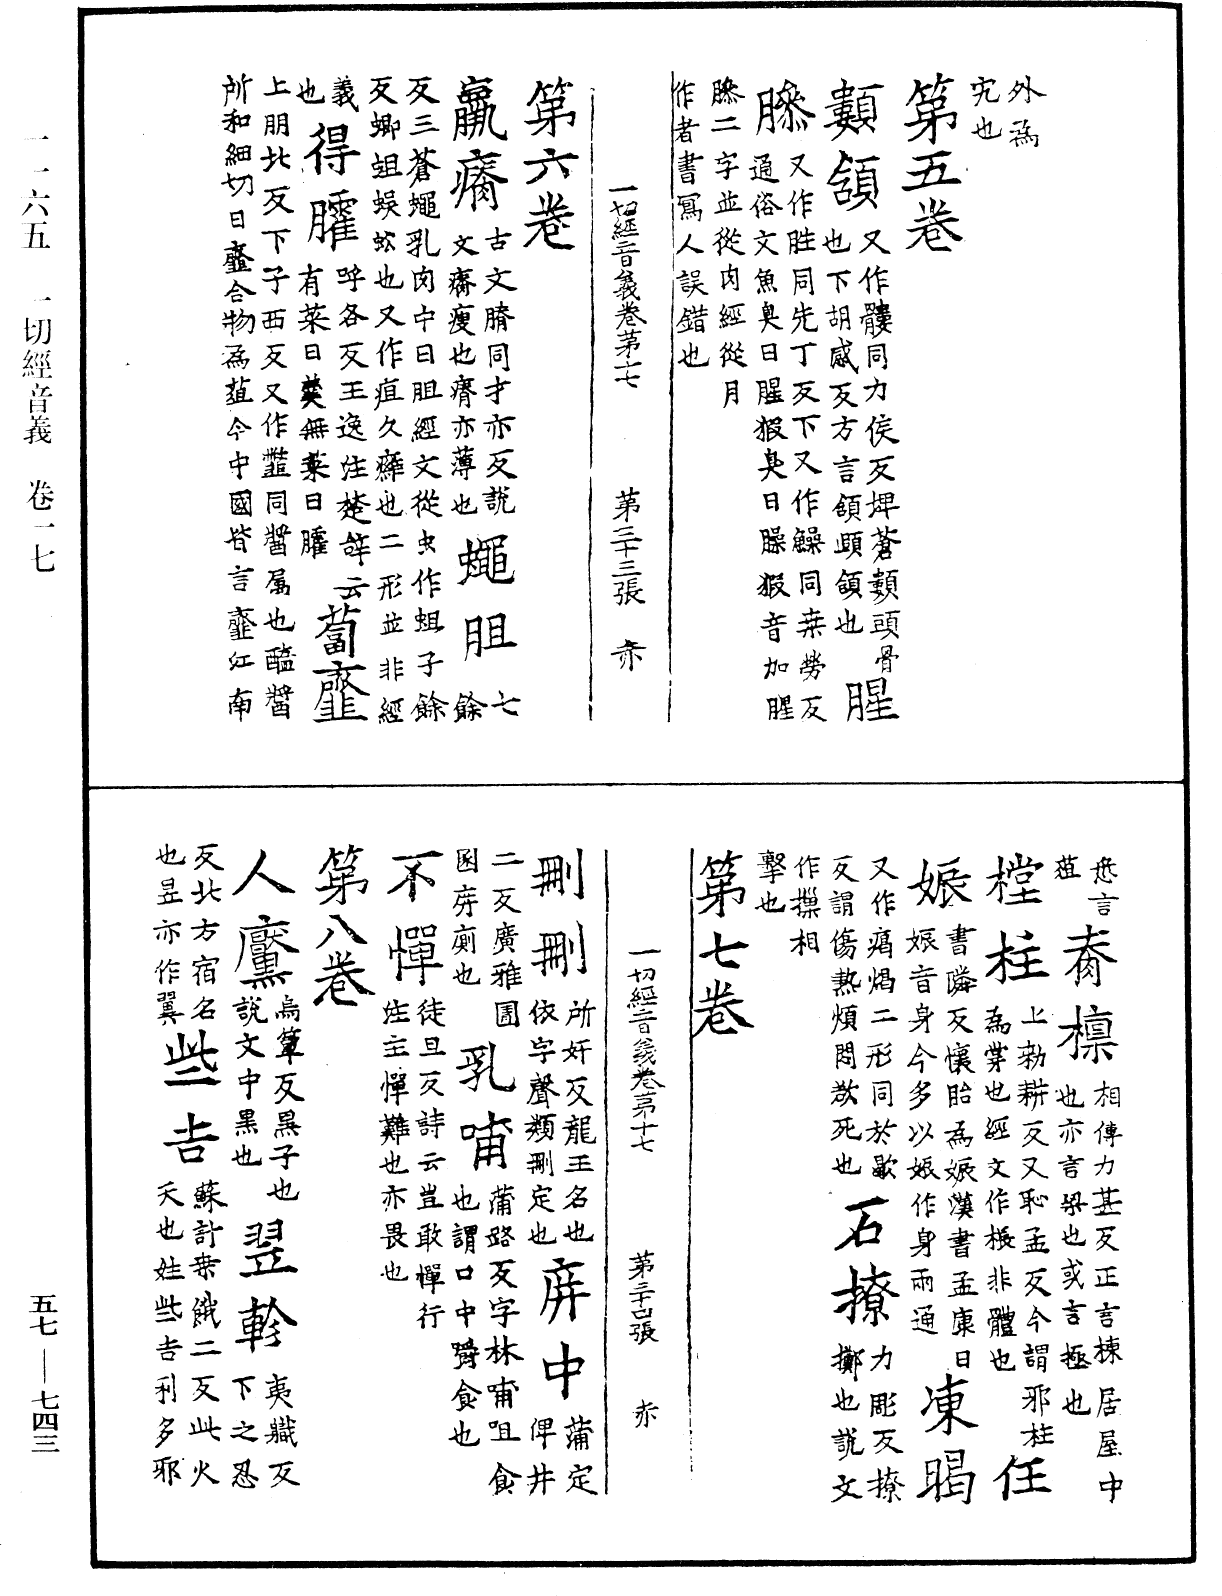 外為
宂也
第五卷
顡頷 又作髏同力侯反埤蒼顡頭骨
也下胡感反方言頷頤頷也 腥
臊 又作胜同先丁反下又作鱢同桒勞反
通俗文魚臭曰腥猳臭曰臊猳音加腥
臊二字並從肉經從月
作者書寫人誤錯也
一切經音義卷第十七 第三十三張 赤
第六卷
羸瘠 古文膌同才亦反說
文瘠瘦也瘠亦薄也 蠅胆 七餘
反三蒼蠅乳肉中曰胆經文從虫作蛆子餘
反蝍蛆蜈蚣也又作疽久癰也二形並非經
義也 得臛 呼各反王逸注楚辞云
有菜曰羹無菜曰臛 蔔虀
上朋北反下子西反又作䪡同醬属也醯醬
所和細切曰虀合物為葅今中國皆言虀江南
悉言
葅 脊檁 相傳力甚反正言棟居屋中
也亦言梁也或言極也
樘柱 上勑耕反又恥孟反今謂邪柱
為棠也經文作棖非體也 任
娠 書隣反懷胎為娠漢書孟康曰
娠音身今多以娠作身兩通 凍暍
又作㾚煬二形同於歇
反謂傷熱煩悶欲死也 石撩 力彫反撩
擲也說文
作摷相
擊也
第七卷
一切經音義卷第十七 第三十四張 赤
刪刪 所奸反龍王名也
依字聲類刪定也 庰中 蒲定俾井
二反廣雅圊
圂庰廁也 乳哺 蒲路反字林哺咀食
也謂口中嚼食也
不憚 徒旦反詩云豈敢憚行
注主憚難也亦畏也
第八卷
人黡 烏簟反黒子也
說文中黒也 翌軫 夷職反下之忍
反北方宿名
也昱亦作翼 些吉 蘇計桒餓二反此火
天也姓些吉利多邪
一一六五 一切經音義 卷一七
五七—七四三